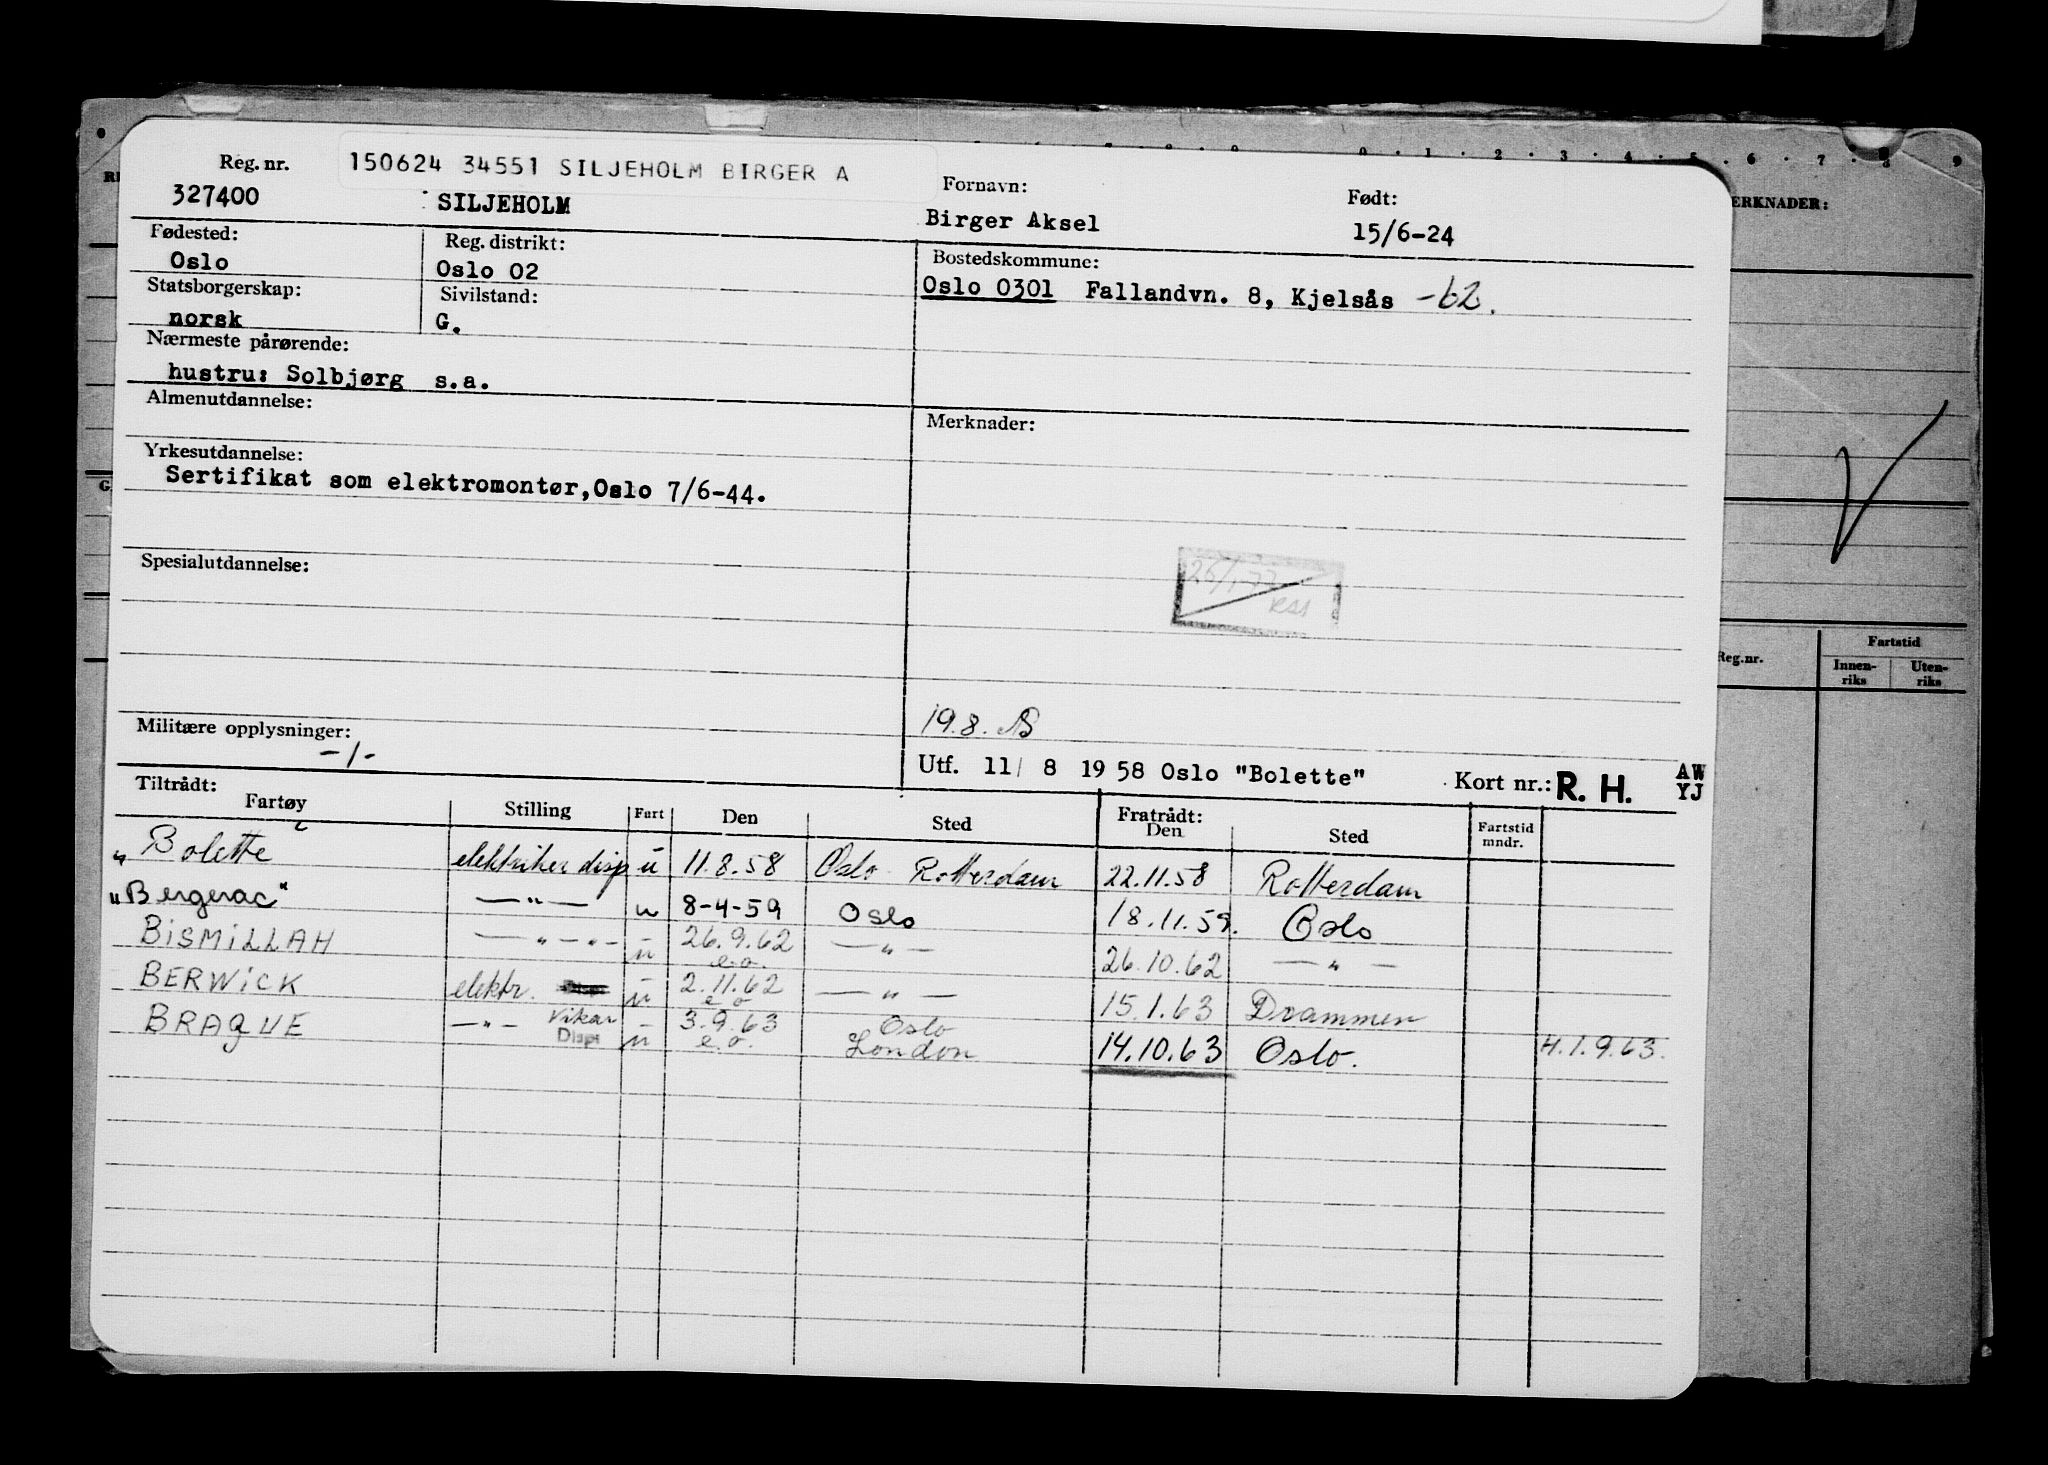 Reg. nr.
150624 34551 SILJEHOLM BIRGER A
327400
SILJEHOLM
Fornavn:
Birger Aksel
Født:
15/6-24
Fødested:
Oslo
Reg. distrikt:
Oslo 02
Bostedskommune:
Oslo 0301 Fallandvn. 8, Kjelsås -62.
Statsborgerskap:
norsk
Sivilstand:
G.
Nærmeste pårørende:
hustru: Solbjørg s.a.
Almenutdannelse:
Merknader:
Yrkesutdannelse:
Sertifikat som elektromontør,Oslo 7/6-44.
Spesialutdannelse:
Militære opplysninger:
-/-
19.8.
Utf. 11/ 8 1958 Oslo "Bolette"
Kort nr.: R. H.
AW
YJ
Tiltrådt:
Fartøy Stilling Fart Den Sted Fratrådt: Den Sted Fartstid mndr.
" Bolette elektriker disp u 11.8.58 Oslo Rotterdam 22.11.58 Rotterdam
"Bergerac" —"— u 8-4-59 Oslo 18.11.59. Oslo
BISMILLAH —"—"— u 26.9.62 e.o. —"— 26.10.62 —"—
BERWICK elektr. u 2.11.62 e o —"— 15.1.63 Drammen
BRAQUE —"— Vikar Disp. u 3.9.63 e.o. Oslo London 14.10.63 Oslo. H.1.9.63.
ERKNADER:
Reg.nr.
Fartstid
Innen-
riks
Uten-
riks